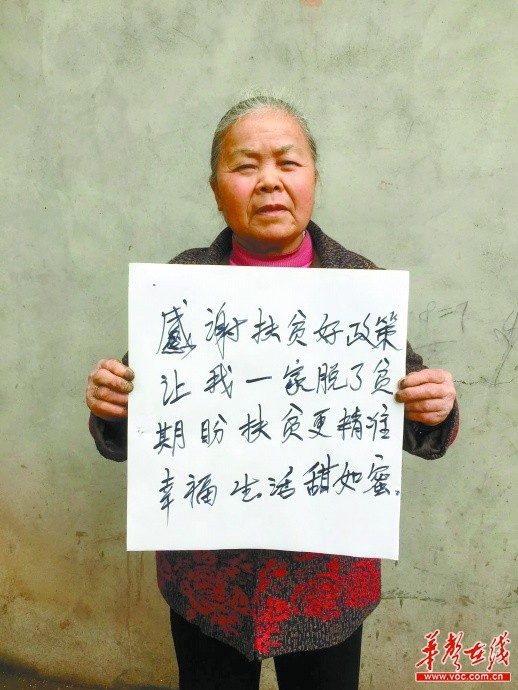 感谢扶贫好政策
让我一家脱了贫
期盼扶贫更精准
幸福生活甜如蜜。
华声在线
www.voc.com.cn